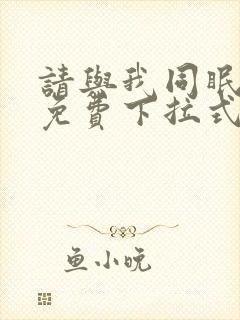 請與我同眠
免費下拉式
鱼小晚